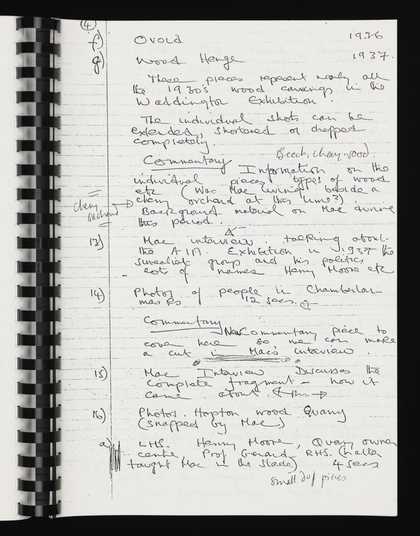 (4)
f) Ovoid 1936
g) Wood Henge 1937.
These pieces represent nearly all
the 1930's wood carvings in the
Waddington Exhibition.
The individual shots can be
extended, shortened or dropped
completely.
Beech, cherry-wood.
Commentary Information on the
individual pieces types of wood
etc (Was Mac living beside a
cherry orchard at this time?).
cherry orchard
Background material on Mac during
this period.
13) Mac interview talking about
the AIA. Exhibition in 1937 the
surealist group and his politics
lots of names Henry Moore etc
14) Photos of people in Chamberlain
masks. 12 secs.
Commentary New Commentary piece to
cover here so we can make
a cut in Mac's interview.
15) Mac Interview Discusses the
Complete fragment – how it
came about
16) Photos. Hopton wood Quarry
(snapped by Mac)
a) LHS. Henry Moore, Quarry owner
centre Prof Gerrard, RHS. (
taught Mac in the Slade) 4 secs
small pieces